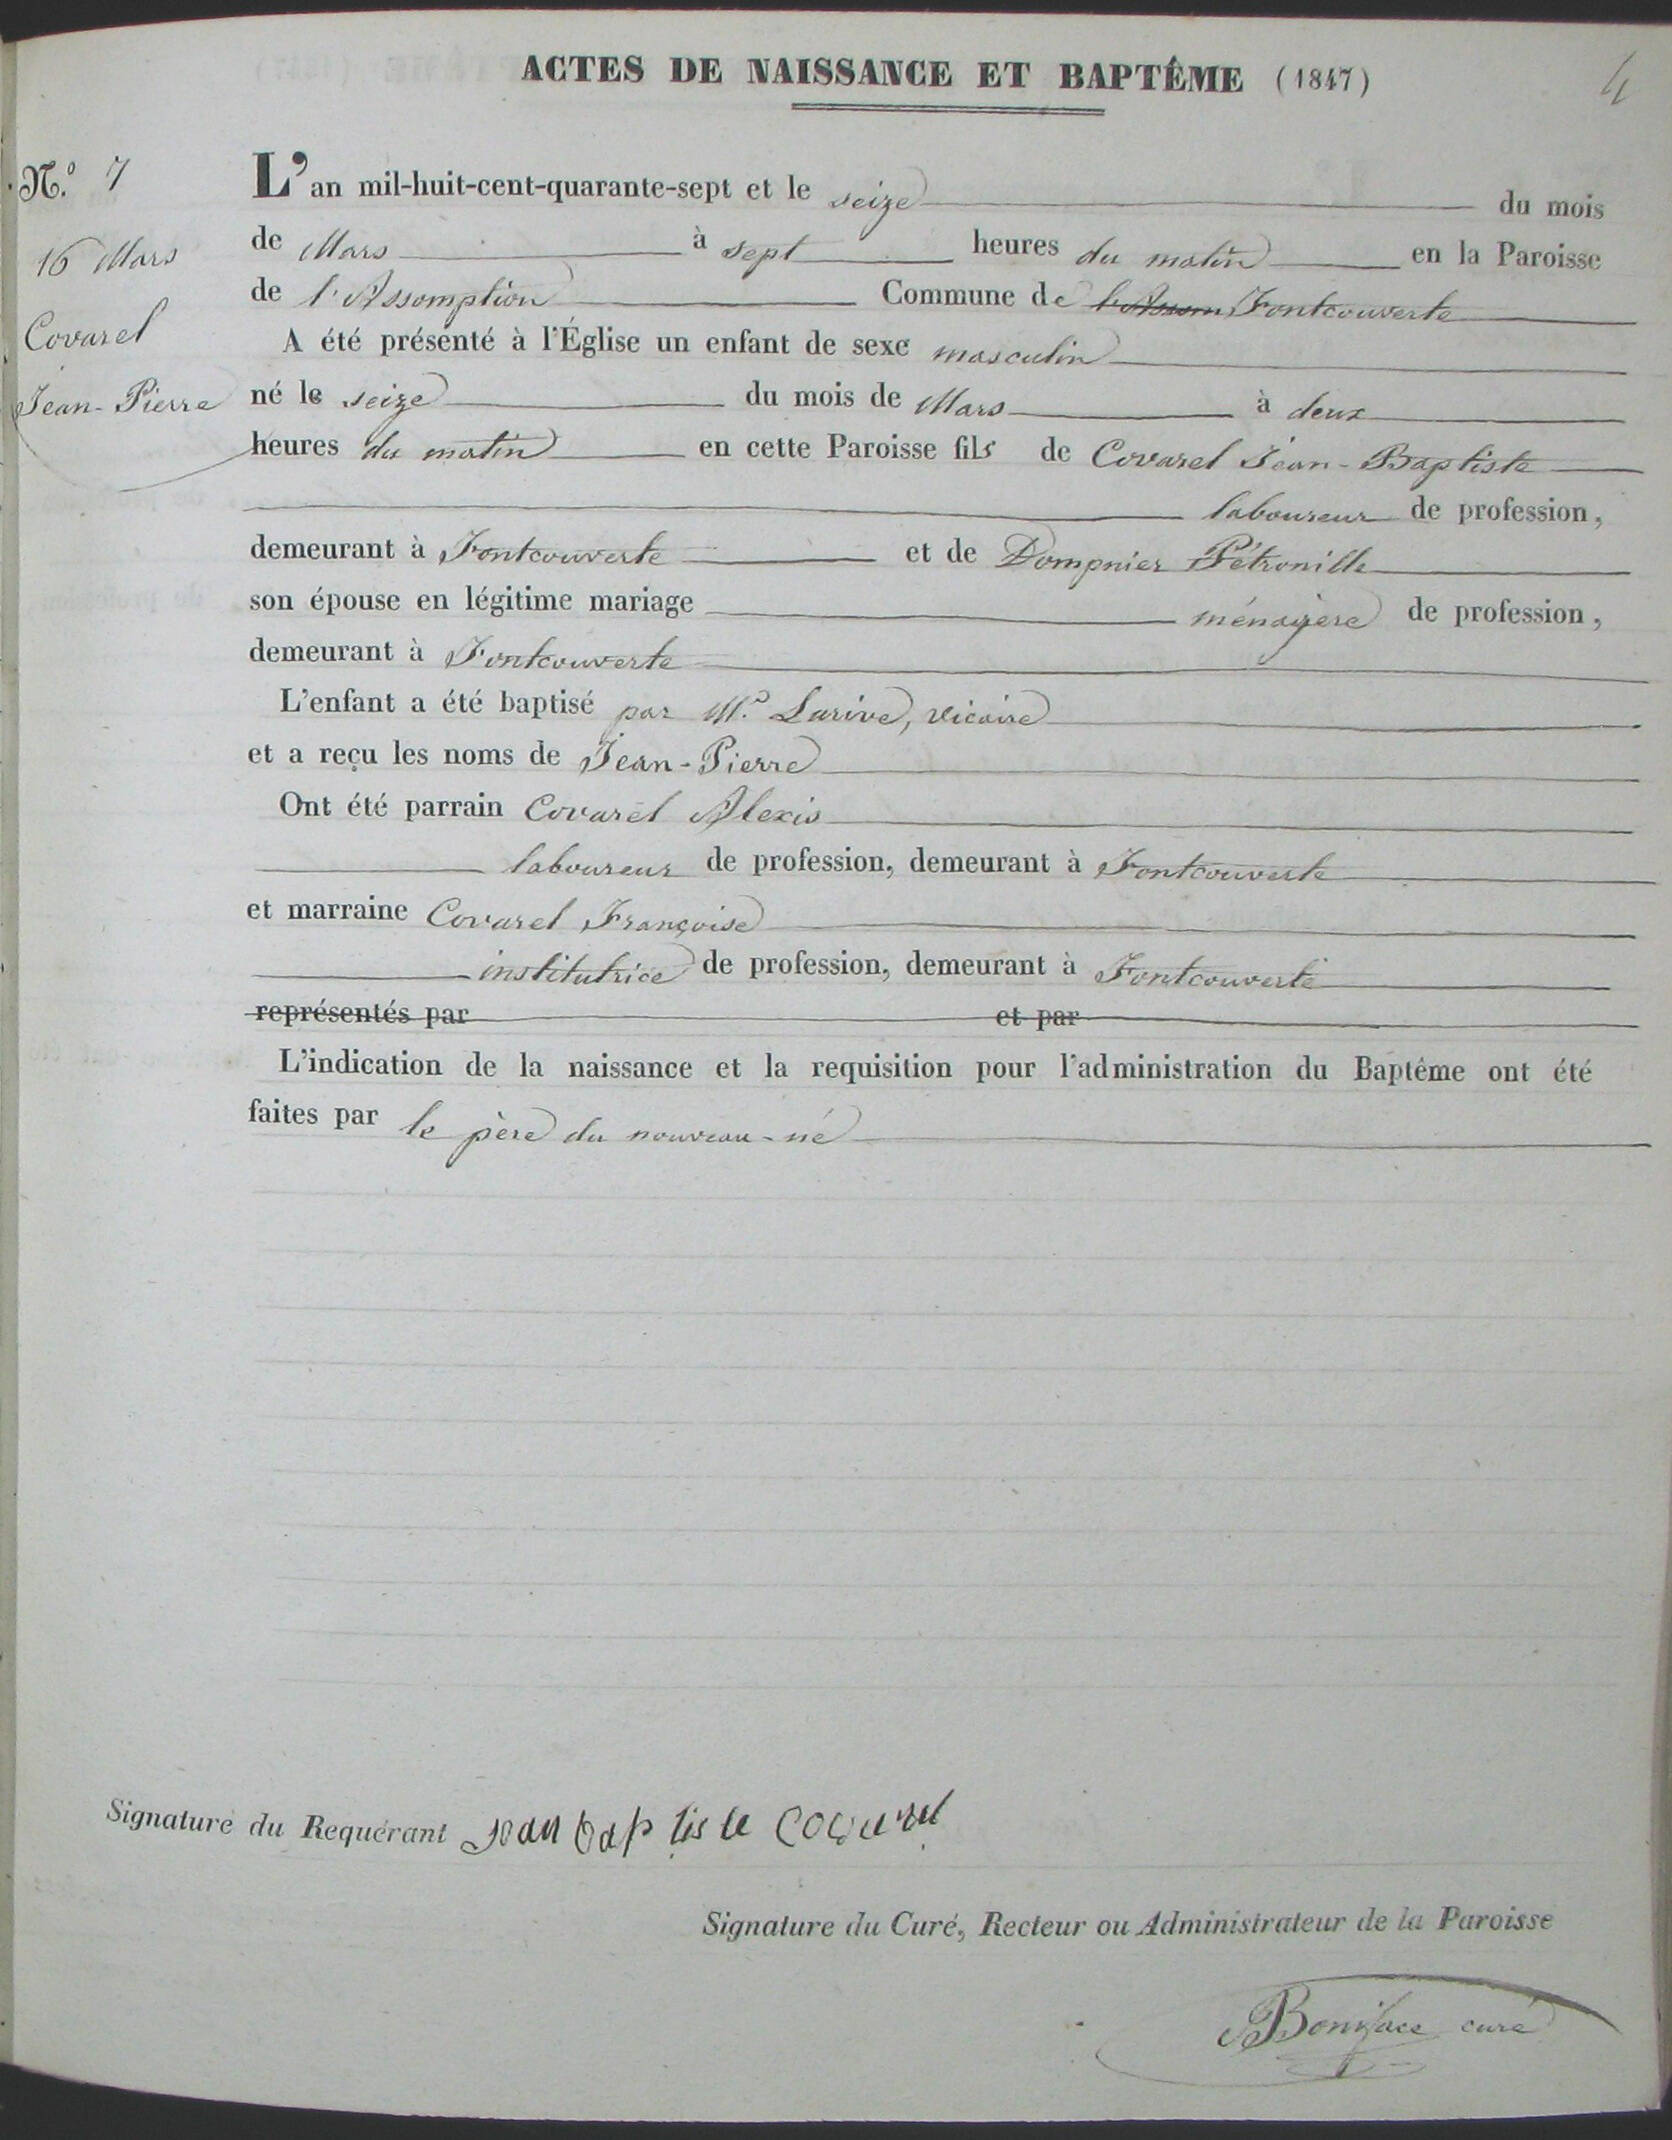 ACTES DE NAISSANCE ET BAPTÊME (1847)
4
N.º 7
16 Mars
Covarel
Jean-Pierre
L'an mil-huit-cent-quarante-sept et le seize du mois
de Mars à sept heures du matin en la Paroisse
de l'Assomption Commune de l'Assom Fontcouverte
A été présenté à l'Église un enfant de sexe masculin
né le seize du mois de Mars à deux
heures du matin en cette Paroisse fils de Covarel Jean-Baptiste
laboureur de profession,
demeurant à Fontcouverte et de Dompnier Pétronille
son épouse en légitime mariage ménagère de profession,
demeurant à Fontcouverte
L'enfant a été baptisé par Mr. Larive, vicaire
et a reçu les noms de Jean-Pierre
Ont été parrain Covarel Alexis
laboureur de profession, demeurant à Fontcouverte
et marraine Covarel Françoise
institutrice de profession, demeurant à Fontcouverte
représentés par et par
L'indication de la naissance et la requisition pour l'administration du Baptême ont été
faites par le père du nouveau-né
Signature du Requérant Jean baptiste Covarel
Signature du Curé, Recteur ou Administrateur de la Paroisse
Boniface curé